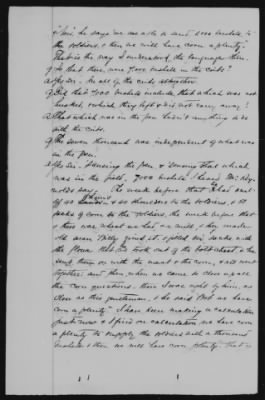 "& he says we are able to send 1000 bushels to
the soldiers, & then we will have corn a plenty."
That is the way I understood the language then.
Q So that there were 7,000 bushels in the cribs?
A Yes sir. In all of the cribs altogether
Q Did that 7,000 bushels include that which was not
husked, which they left & did not carry away?
A That which was in the pen hadn't anything to do
with the cribs.
Q The seven thousand was independent of what was
in the pen.
A Yes sir, housing the pen & that which
was in the field. 7,000 bushels I heard Mr.
say. The week before that I had sent
off 40 & 40 shoulders to the soldiers, & 60
pecks of corn to the soldiers, the week before that
& there was wheat we had at mill, & they made
old man Billy grind it, & filled six sacks with
the flour that was took out of the wheat, & they
sent them on with the meat & the corn, & all went
together and then when we came to close up all
the corn questions, there I was right by him, as
close as this gentleman, & he said "But we have
corn a plenty" I have been making a calculation
just now & I find on calculation we have corn
a plenty to supply the soldiers with a thousand
bushels & then we will have corn plenty. That is